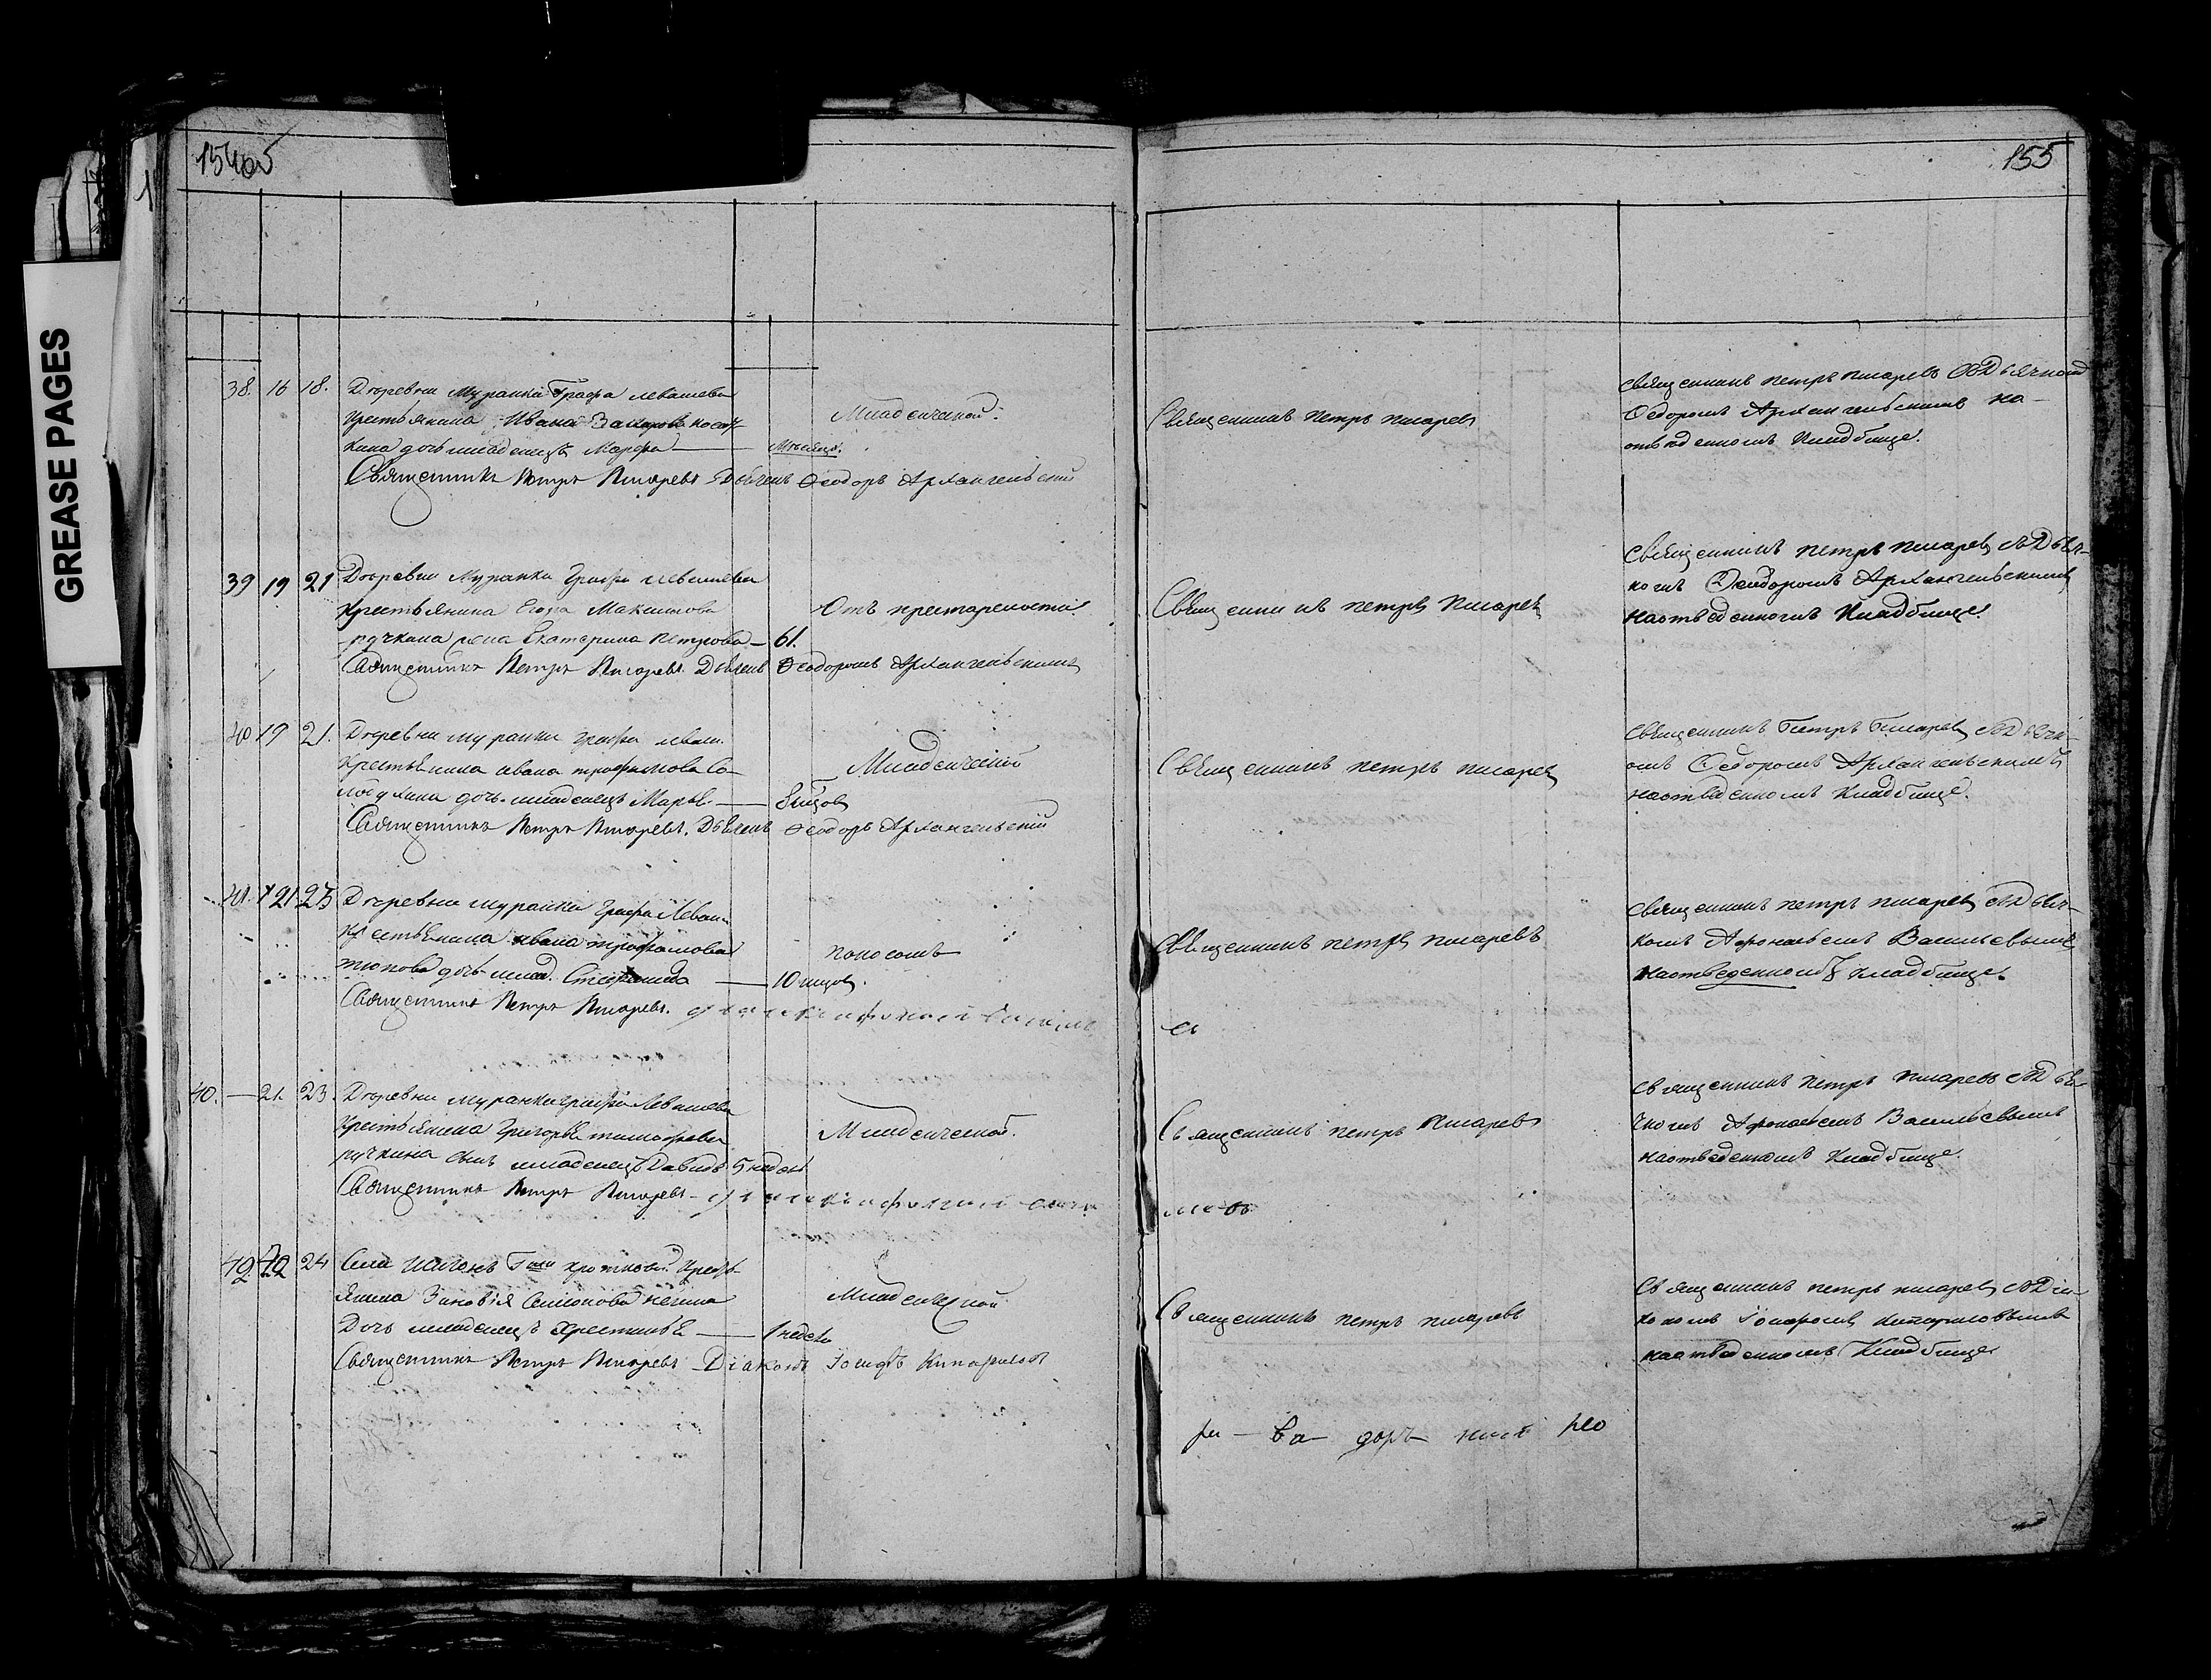 GREASE PAGES
154об
155
38. 16 18. Деревни Муранки Графа Левашева
крестьянина Ивана Захарова
кина дочь младенецъ Марфа — Мѣсяцъ.
Младенческой.
Священникъ Петръ Писаревъ
Священникъ Петръ Писаревъ Дьячекъ Ѳеодоръ Архангельскій
священникъ петръ писаревъ съ Дьячкомъ
Ѳедоромъ Архангельскимъ на
отведенномъ кладбище.
39 19 21 Деревни Муранки Графа Левашева
крестьянина Егора Максимова
ручкина жена Екатерина Петрова — 61.
Отъ престарелости
Священникъ петръ Писаревъ
Священникъ Петръ Писаревъ. Дьячекъ Ѳеодоромъ Архангельскимъ
священникъ петръ писаревъ съ Дьяч-
комъ Ѳеодоромъ Архангельскимъ
на отведенномъ Кладбище.
40 19 21. Деревни муранки графа леваш.
крестьянина ивана трофимова Со-
лодухина дочь младенецъ Марья — 8 мцов
Младенческой
Священникъ петръ писаревъ
Священникъ Петръ Писаревъ. Дьячекъ Ѳеодоръ Архангельскій
священникъ Петръ Писаревъ съ Дьячк-
омъ Ѳедоромъ Архангельскимъ
на отведенномъ кладбище.
41. 21 23 Деревни муранки графа Леваш.
крестьянина ивана трофимова
тюкова дочь млад. Степанида — 10 мцов.
поносомъ
Священникъ петръ писаревъ
Священникъ Петръ Писаревъ.
священникъ петръ писаревъ съ Дьяч-
комъ Афонасьемъ Васильевымъ
на отведенномъ кладбище.
40. — 21. 23. Деревни муранки графа Левашева
Крестьянина Григорья тимофеева
ручкина сынъ младенецъ Давидъ 5 недель
Младенческой.
Священникъ петръ Писаревъ
Священникъ Петръ Писаревъ
священникъ петръ писаревъ съ Дья-
чкомъ Афонасьемъ Васильевымъ
на отведенномъ кладбище.
42. 22 24 Села Гжи кротковой крест-
янина Зиновія Семенова
Дочь младенецъ Хрестинья — 1 недели
Младенческой
Священникъ петръ писаревъ
Священникъ Петръ Писаревъ Діаконъ Іосифъ Кипарисовъ
Священникъ петръ писаревъ съ Діа-
кономъ Іосифомъ Кипарисовымъ
на отведенномъ Кладбище